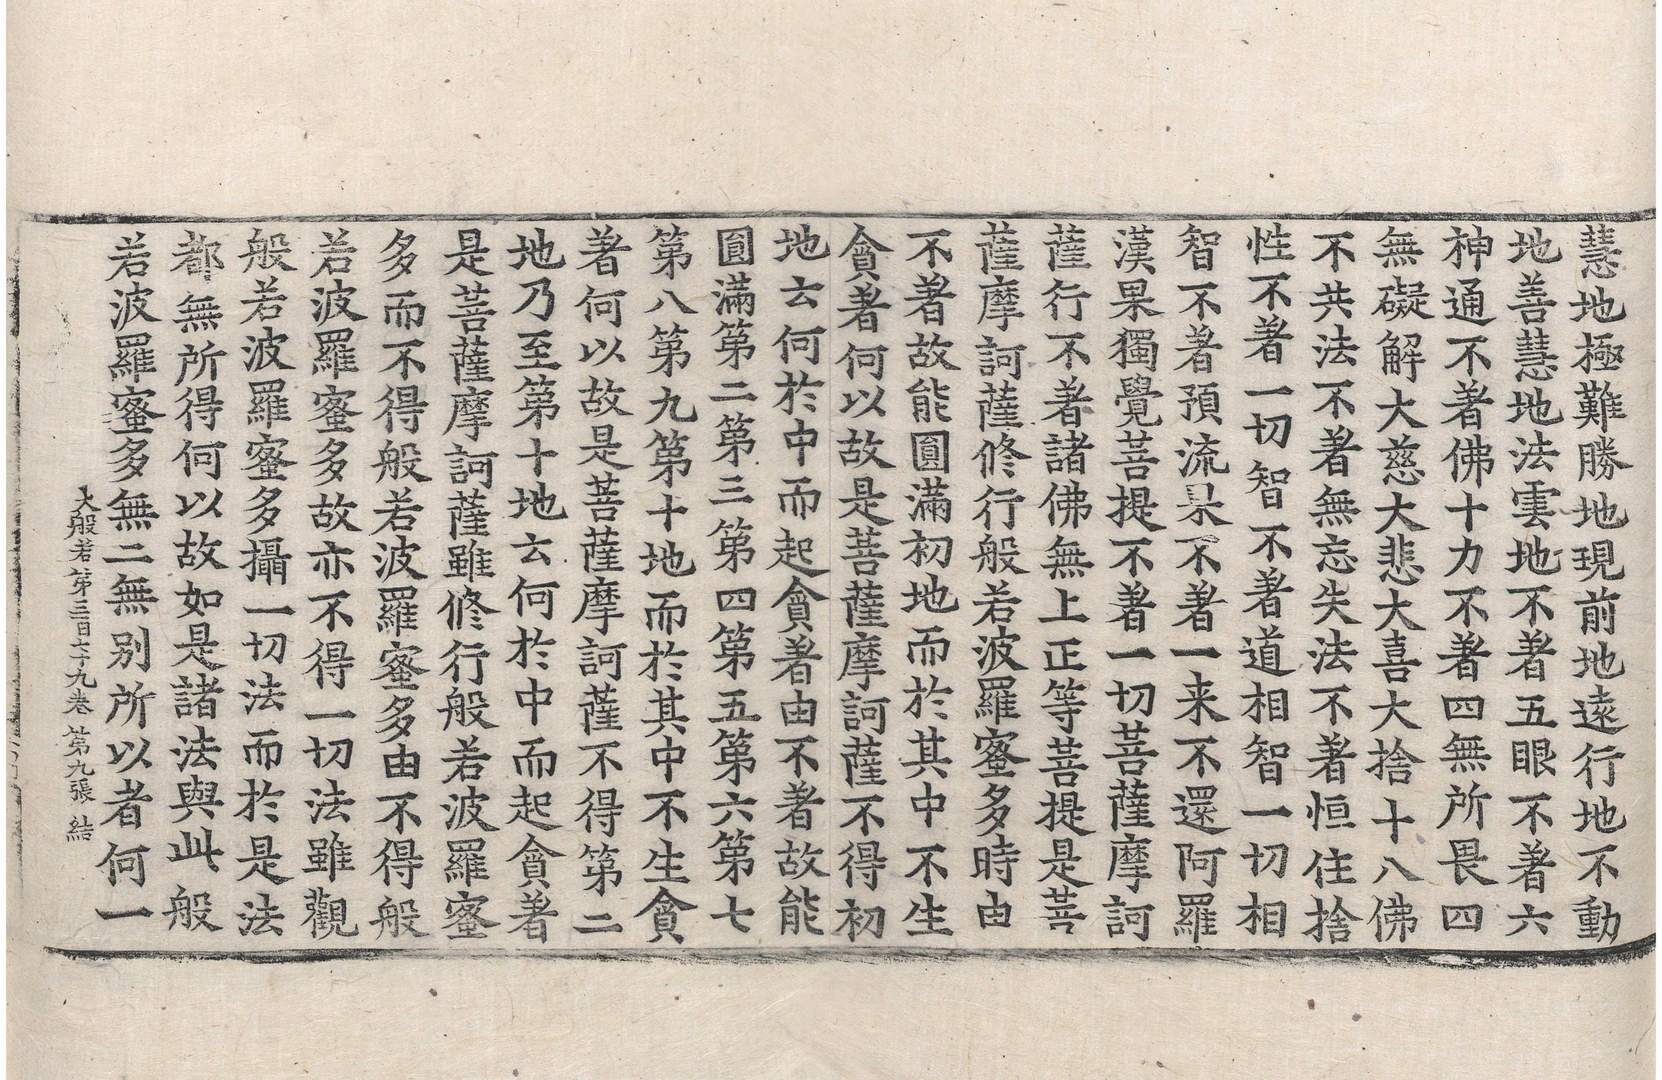 慧地極難勝地現前地遠行地不動
地善慧地法雲地不著五眼不著六
神通不著佛十力不著四無所畏四
無礙解大慈大悲大喜大捨十八佛
不共法不著無忘失法不著恒住捨
性不著一切智不著道相智一切相
智不著預流果不著一来不還阿羅
漢果獨覺菩提不著一切菩薩摩訶
薩行不著諸佛無上正等菩提是菩
薩摩訶薩修行般若波羅蜜多時由
不著故能圓滿初地而於其中不生
貪著何以故是菩薩摩訶薩不得初
地云何於中而起貪著由不著故能
圓滿第二第三第四第五第六第七
第八第九第十地而於其中不生貪
著何以故是菩薩摩訶薩不得第二
地乃至第十地云何於中而起貪著
是菩薩摩訶薩雖修行般若波羅蜜
多而不得般若波羅蜜多由不得般
若波羅蜜多故亦不得一切法雖觀
般若波羅蜜多攝一切法而於是法
都無所得何以故如是諸法與此般
若波羅蜜多無二無別所以者何一
大般若第三百七十九卷 第九張 結